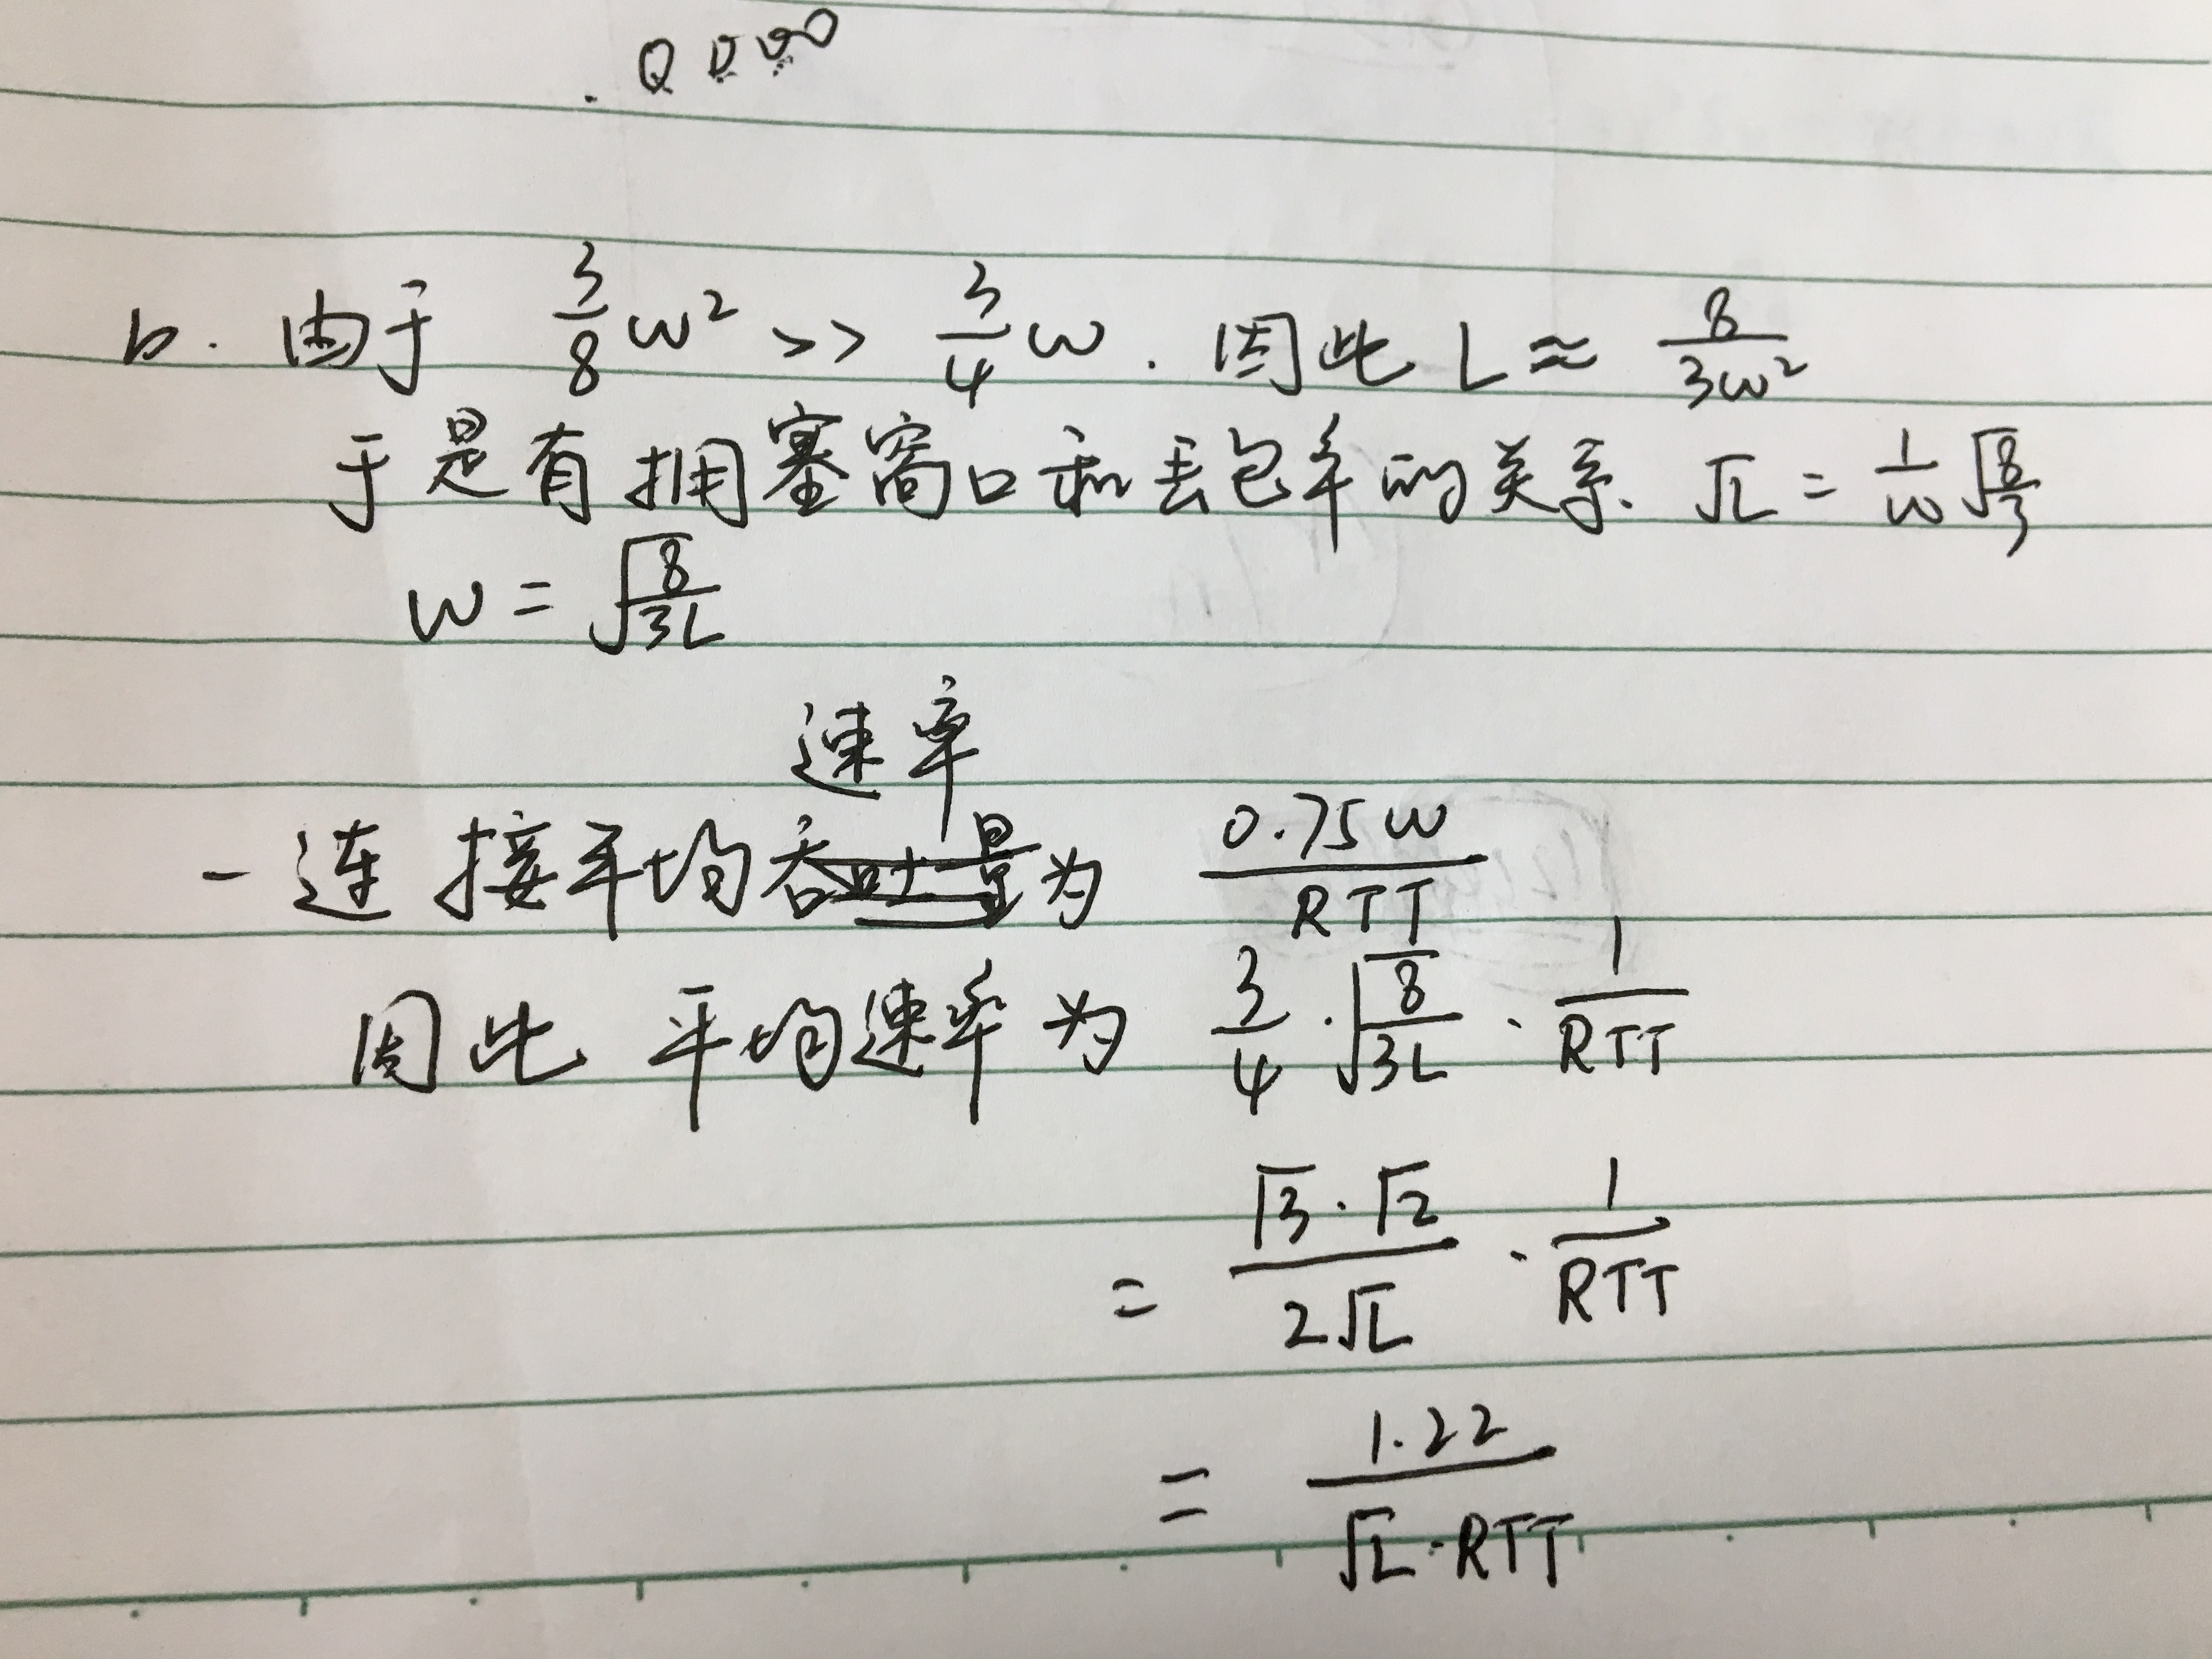 b. 由于 3/8 w² >> 3/4 w. 因此 L ≈ 8/3w²
于是有拥塞窗口和丢包率的关系. √L = 1/w √8/3
w = √8/3L
速率
- 连接平均吞吐量为 0.75w/RTT
因此 平均速率为 3/4 · √8/3L · 1/RTT
= √3·√2/2√L · 1/RTT
= 1.22/√L·RTT